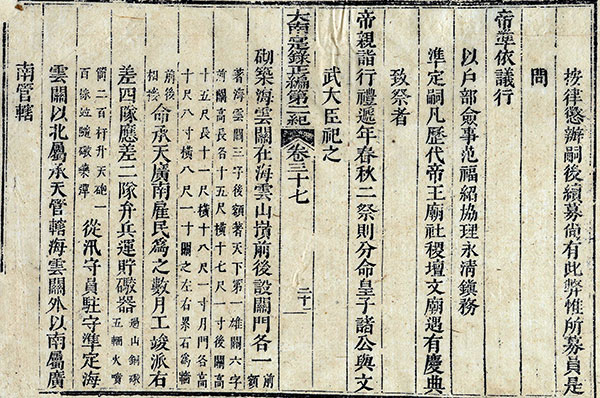 按律懲辦嗣後續募尚有此弊惟所募員是
問
帝準依議行
以戶部僉事范福紹協理永清鎮務
準定嗣凡歷代帝王廟社稷壇文廟遇有慶典
致祭者
帝親詣行禮遞年春秋二祭則分命皇子諸公與文
武大臣祀之
大南寔錄正編第二紀 卷三十七 二十二
砌築海雲關在海雲山嶺前後設關門各一前額
著海雲關三字後額著天下第一雄關六字
前關高長各十五尺橫十七尺一寸後關高
十五尺長十一尺橫十八尺一寸月門各高
十尺八寸橫八尺一寸關之左右累石為牆
前後相接命承天廣南雇民為之數月工竣派右
差四隊應差二隊弁兵運貯礮器過山銅礮五輛火噴
筒二百杆升天砲一百條並隨礮藥彈從汛守員駐守準定海
雲關以北屬承天管轄海雲關外以南屬廣
南管轄